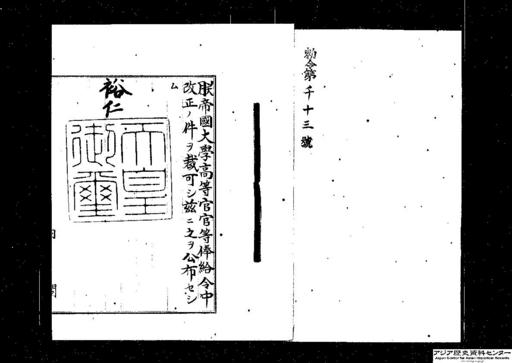 勅令第千十三號
朕帝國大學高等官官等俸給令中
改正ノ件ヲ裁可シ玆ニ之ヲ公布セシ
ム
裕仁
天皇御璽
アジア歴史資料センター
Japan Center for Asian Historical Records